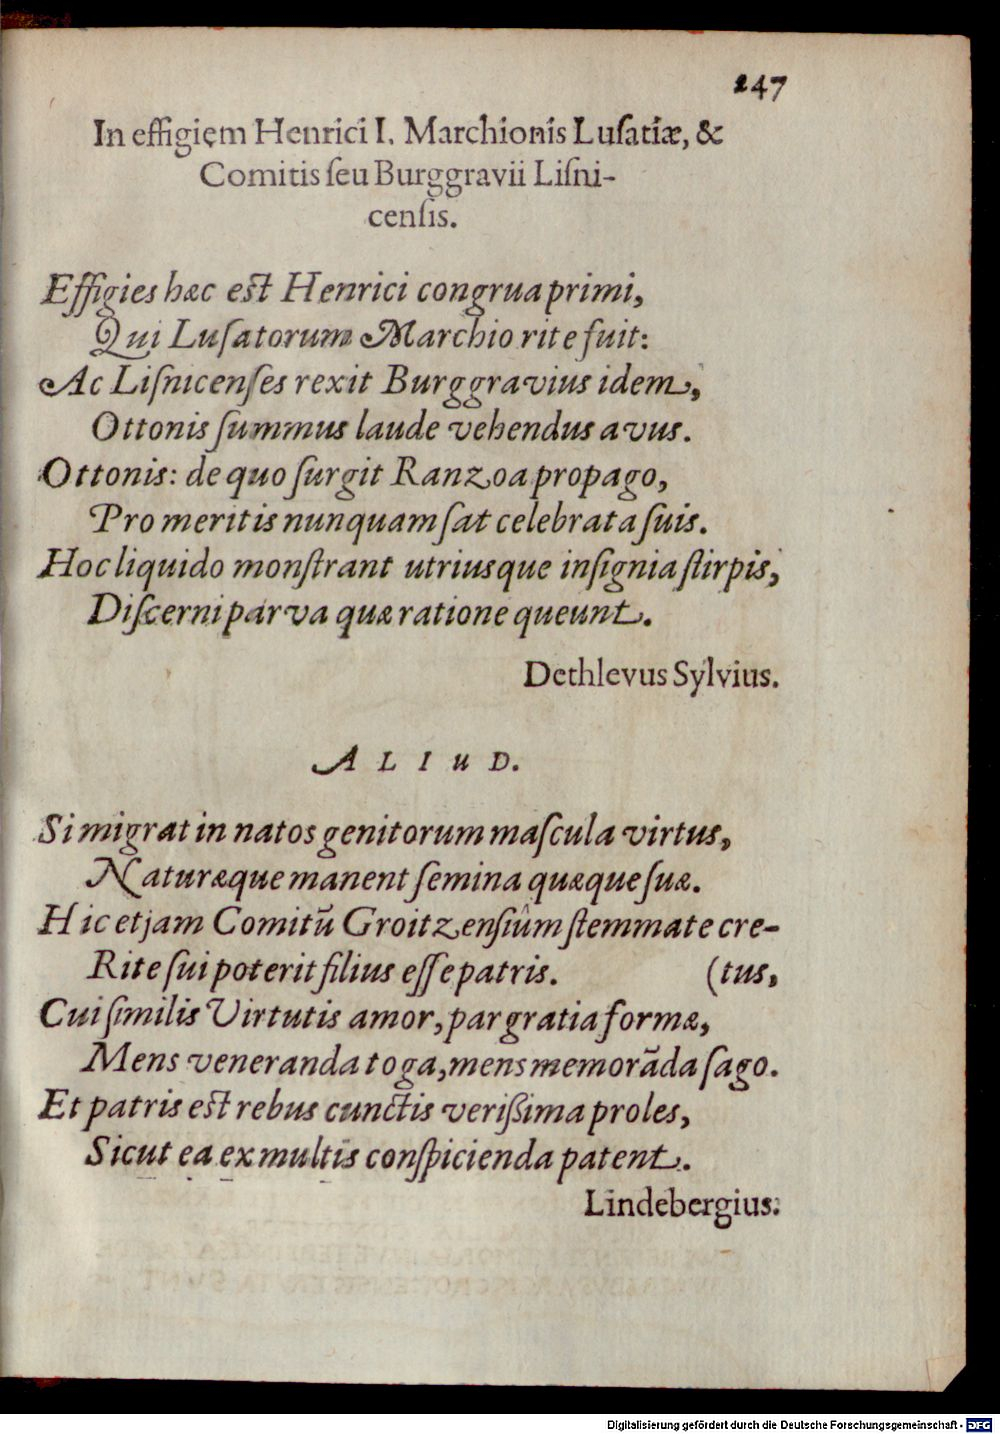 247
In effigiem Henrici I. Marchionis Lusatiæ, &
Comitis ſeu Burggravii Liſni-
cenſis.
Effigies hæc est Henrici congrua primi,
Qui Luſatorum Marchio rite fuit:
Ac Liſnicenſes rexit Burggravius idem,
Ottonis ſummus laude vehendus avus.
Ottonis: de quo ſurgit Ranzoa propago,
Pro meritis nunquam ſat celebrata ſuis.
Hoc liquido monſtrant utriusque inſignia ſtirpis,
Diſcerni parva quæ ratione queunt.
Dethlevus Sylvius.
ALIUD.
Si migrat in natos genitorum maſcula virtus,
Naturæque manent ſemina quæque ſuæ.
Hic etjam Comitū Groitzenſiûm ſtemmate cre-
Rite ſui poterit filius eſſe patris. (tus,
Cui ſimilis Virtutis amor, par gratia formæ,
Mens veneranda toga, mens memorāda ſago.
Et patris est rebus cunctis verißima proles,
Sicut ea ex multis conſpicienda patent.
Lindebergius.
Digitalisierung gefördert durch die Deutsche Forschungsgemeinschaft - DFG